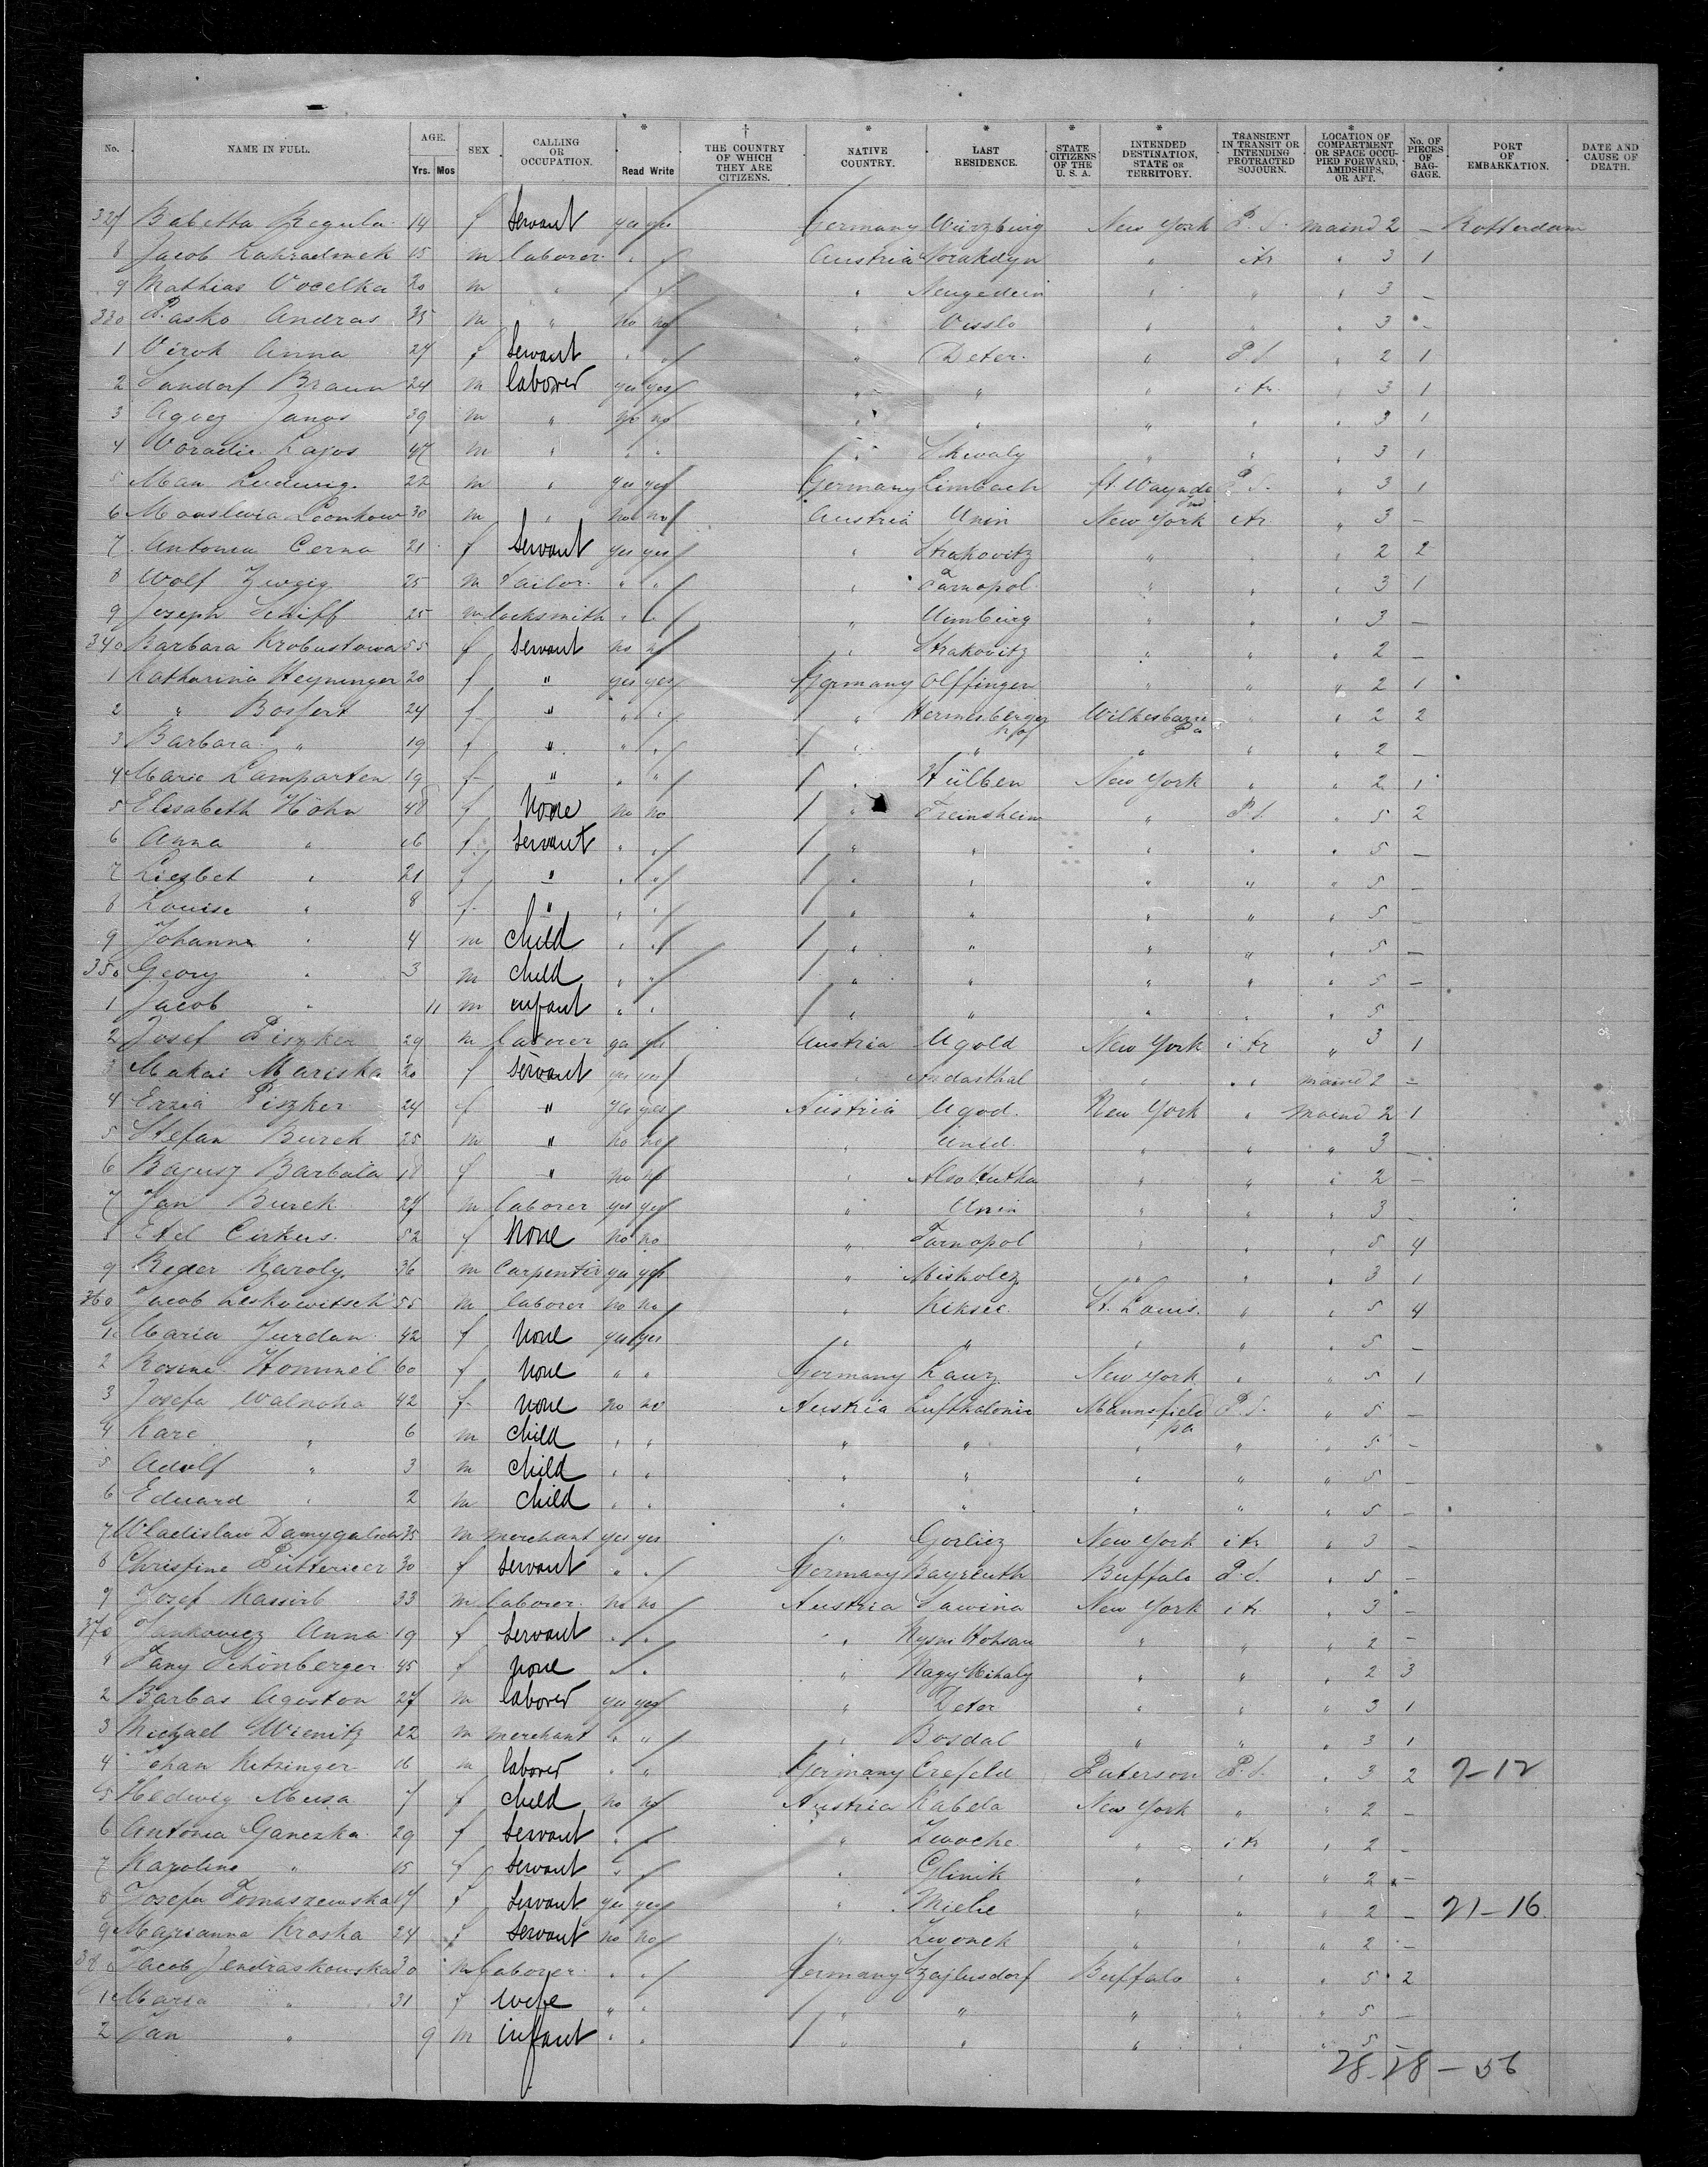 No. NAME IN FULL. AGE. Yrs. Mos SEX CALLING OR OCCUPATION. * Read Write † THE COUNTRY OF WHICH THEY ARE CITIZENS. * NATIVE COUNTRY. * LAST RESIDENCE. * STATE CITIZENS OF THE U. S. A. * INTENDED DESTINATION, STATE OR TERRITORY. TRANSIENT IN TRANSIT OR INTENDING PROTRACTED SOJOURN. * LOCATION OF COMPARTMENT OR SPACE OCCUPIED FORWARD, AMIDSHIPS, OR AFT. No. OF PIECES OF BAGGAGE. PORT OF EMBARKATION. DATE AND CAUSE OF DEATH.
327 Babetta Regula 14 f Servant yes yes Germany Würzburg New York P. S. maind 2 – Rotterdam
8 Jacob 15 m laborer " " Austria " itr " 3 1
9 Mathias Vocelka 20 m " " " " Neugedein " " " 3 –
330 Pasko Andras 35 m " no no " Visslo " " " 3 –
1 Virok Anna 27 f Servant " " " Deter " P.S. " 2 1
2 Sandorf Braun 24 m laborer yes yes " " " itr " 3 1
3 Agocz Janos 39 m " no no " " " " " 3 1
4 Lajos 47 m " " " " " " " 3 1
5 Man Ludwig 22 m " yes yes Germany Limbach ft. Wayne Ind P.S. " 3 1
6 30 m " no no Austria Unin New York itr " 3 –
7 Antonia Cerna 21 f Servant yes yes " Strakovitz " " " 2 2
8 Wolf Zwzig 25 m tailor " " " Tarnopol " " " 3 1
9 Joseph Schiff 25 m locksmith " " " " " " 3 –
340 Barbara Krobustowa 55 f Servant no no " Strakovitz " " " 2 –
1 Katharina Heyninger 20 f " yes yes Germany Olffingen " " " 2 1
2 " Bossert 24 f " " " " Hermesberger hof Wilkesbarre Pa " " 2 2
3 Barbara " 19 f " " " " " " " " 2 –
4 Marie Lamparten 19 f " " " " Hülben New York " " 2 1
5 Elisabeth Höhn 48 f None no no " Freinsheim " P.S. " 5 2
6 Anna " 16 f Servant " " " " " " " 5 –
7 Liesbet " 21 f " " " " " " " " 5 –
8 Louise " 8 f " " " " " " " " 5 –
9 Johann " 4 m Child " " " " " " " 5 –
350 Georg " 3 m child " " " " " " " 5 –
1 Jacob " 11 m infant " " " " " " " 5 –
2 Josef Piszker 29 m laborer yes yes Austria Ugold New York itr " 3 1
3 Makai Mariska 20 f Servant yes yes " Andasthal " " maind 2 –
4 Erzia Piszker 24 f " yes yes Austria Ugod New York " maind 2 1
5 Stefan Burek 25 m " no no " " " " 3 –
6 Barbala 18 f " no no " Also Hutka " " " 2 –
7 Jan Burek 27 m laborer yes yes " Unin " " " 3 –
8 Etel Cirkus 52 f None no no " Tarnopol " " " 5 4
9 Karoly 36 m Carpenter yes yes " Miskolcz " " " 3 1
360 Jacob Leskowitsch 55 m laborer no no " Kiksee St. Louis " " 5 4
1 Maria Jurdan 42 f None yes yes " " " " " 5 –
2 Rosina Hommel 60 f None " " Germany Kanz New York " " 5 1
3 Josefa Walnoha 42 f None no no Austria Mannsfield pa P.S. " 5 –
4 Kare " 6 m Child " " " " " " " 5 –
5 Adolf " 3 m Child " " " " " " " 5 –
6 Eduard " 2 m Child " " " " " " " 5 –
7 Wladislaw 35 m merchant yes yes " Gorlicz New York itr " 3 –
8 Christine 30 f Servant " " Germany Bayreuth Buffalo P.S. " 5 –
9 Josef Kassirb 33 m laborer no no Austria Sawina New York itr " 3 –
370 Jankovicz Anna 19 f Servant " " " " " " 2 –
1 Fany Schönberger 45 f none " " " Nagy Mihaly " " " 2 3
2 Barbas Agoston 27 m laborer yes yes " Deter " " " 3 1
3 Michael Wienitz 22 m merchant " " " Bosdal " " " 3 1
4 Johan Kitzinger 16 m laborer " " Germany Crefeld Paterson P.S. " 3 2 7–12
5 Hedwig Musa 7 f child no no Austria Kabela New York " " 2 –
6 Antonia Ganezka 29 f Servant " " " " itr " 2 –
7 Karolina " 15 f Servant " " " Glinik " " " 2 –
8 Josefa Tomaszewska 17 f Servant yes yes " Mielie " " " 2 – 21–16
9 Marianna Kroska 24 f Servant no no " Zwonek " " " 2 –
380 Jacob Jendraskowska 30 m laborer " " Germany Buffalo " " 5 2
1 Maria " 31 f wife " " " " " " " 5 –
2 Jan " 9 m infant " " " " " " " 5 –
28–28–56